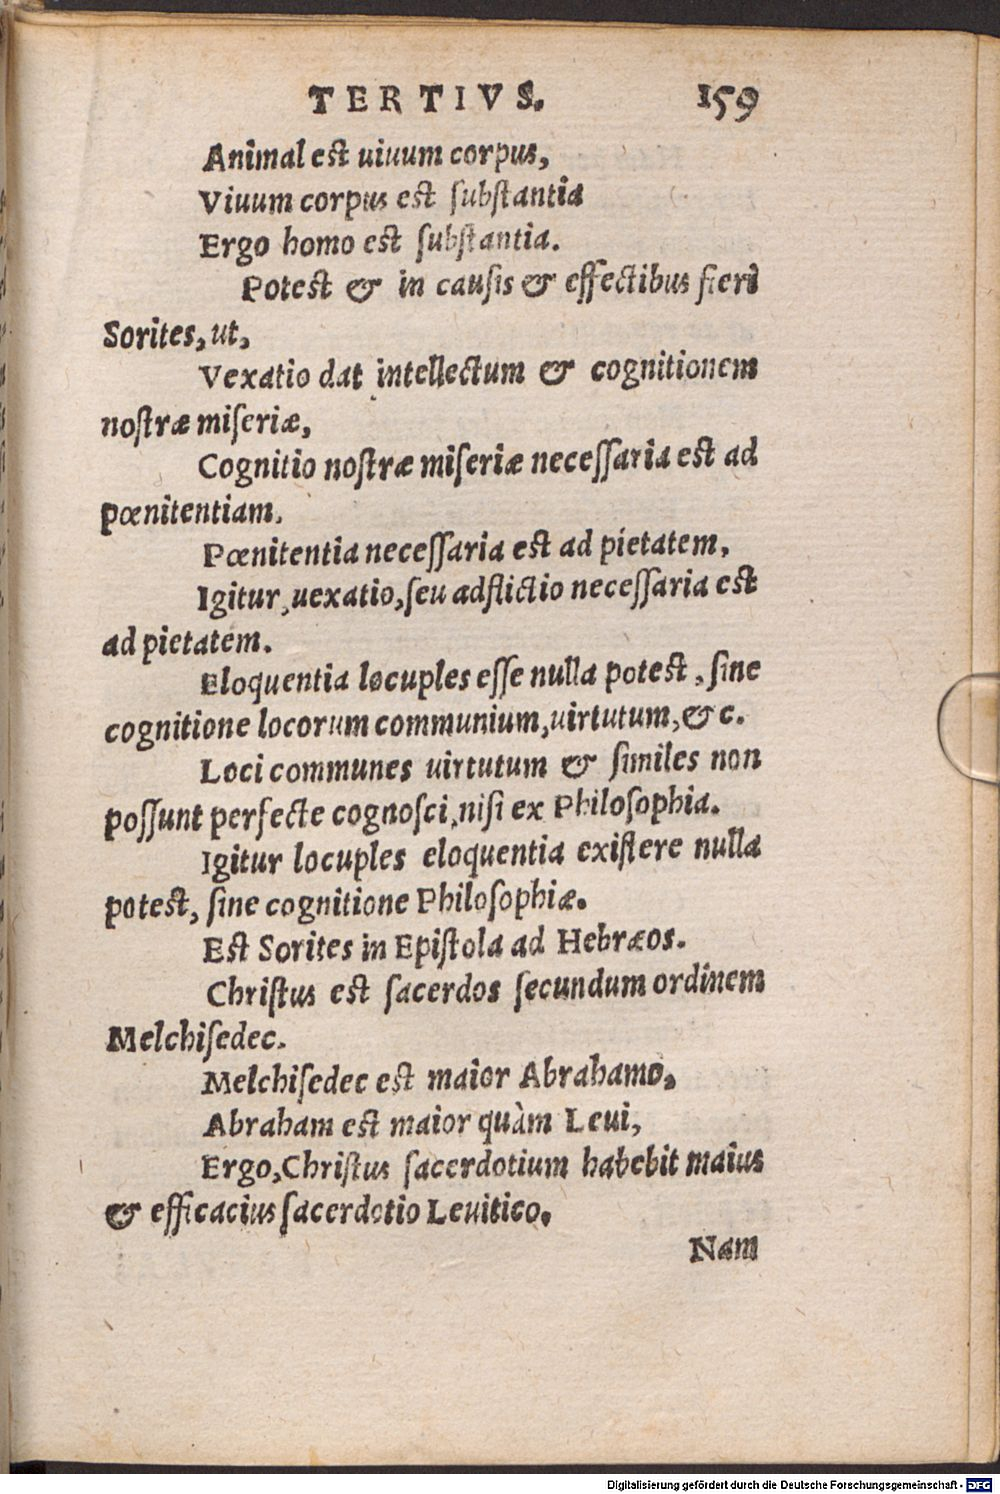 TERTIVS. 159
Animal est uiuum corpus,
Viuum corpus est ſubſtantia
Ergo homo est ſubſtantia.
Potest & in cauſis & effectibus fieri
Sorites, ut,
Vexatio dat intellectum & cognitionem
noſtræ miſeriæ,
Cognitio noſtræ miſeriæ neceſſaria est ad
pœnitentiam.
Pœnitentia neceſſaria est ad pietatem,
Igitur, uexatio, ſeu adflictio neceſſaria est
ad pietatem.
Eloquentia locuples eſſe nulla potest, ſine
cognitione locorum communium, uirtutum, &c.
Loci communes uirtutum & ſimiles non
poſſunt perfecte cognoſci, niſi ex Philoſophia.
Igitur locuples eloquentia exiſtere nulla
potest, ſine cognitione Philoſophiæ.
Est Sorites in Epiſtola ad Hebræos.
Chriſtus est ſacerdos ſecundum ordinem
Melchiſedec.
Melchiſedec est maior Abrahamo,
Abraham est maior quàm Leui,
Ergo, Chriſtus ſacerdotium habebit maius
& efficacius ſacerdotio Leuitico.
Nam
Digitalisierung gefördert durch die Deutsche Forschungsgemeinschaft - DFG